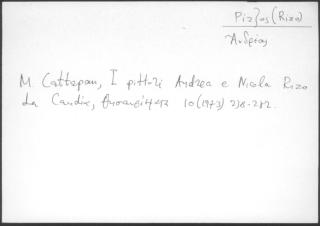 Ριζος (Rizo)
Ανδρέας
M. Cattapan, I pittori Andrea e Nicola Rizo
da Candia, Θησαυρίσματα 10 (1973) 238-282.